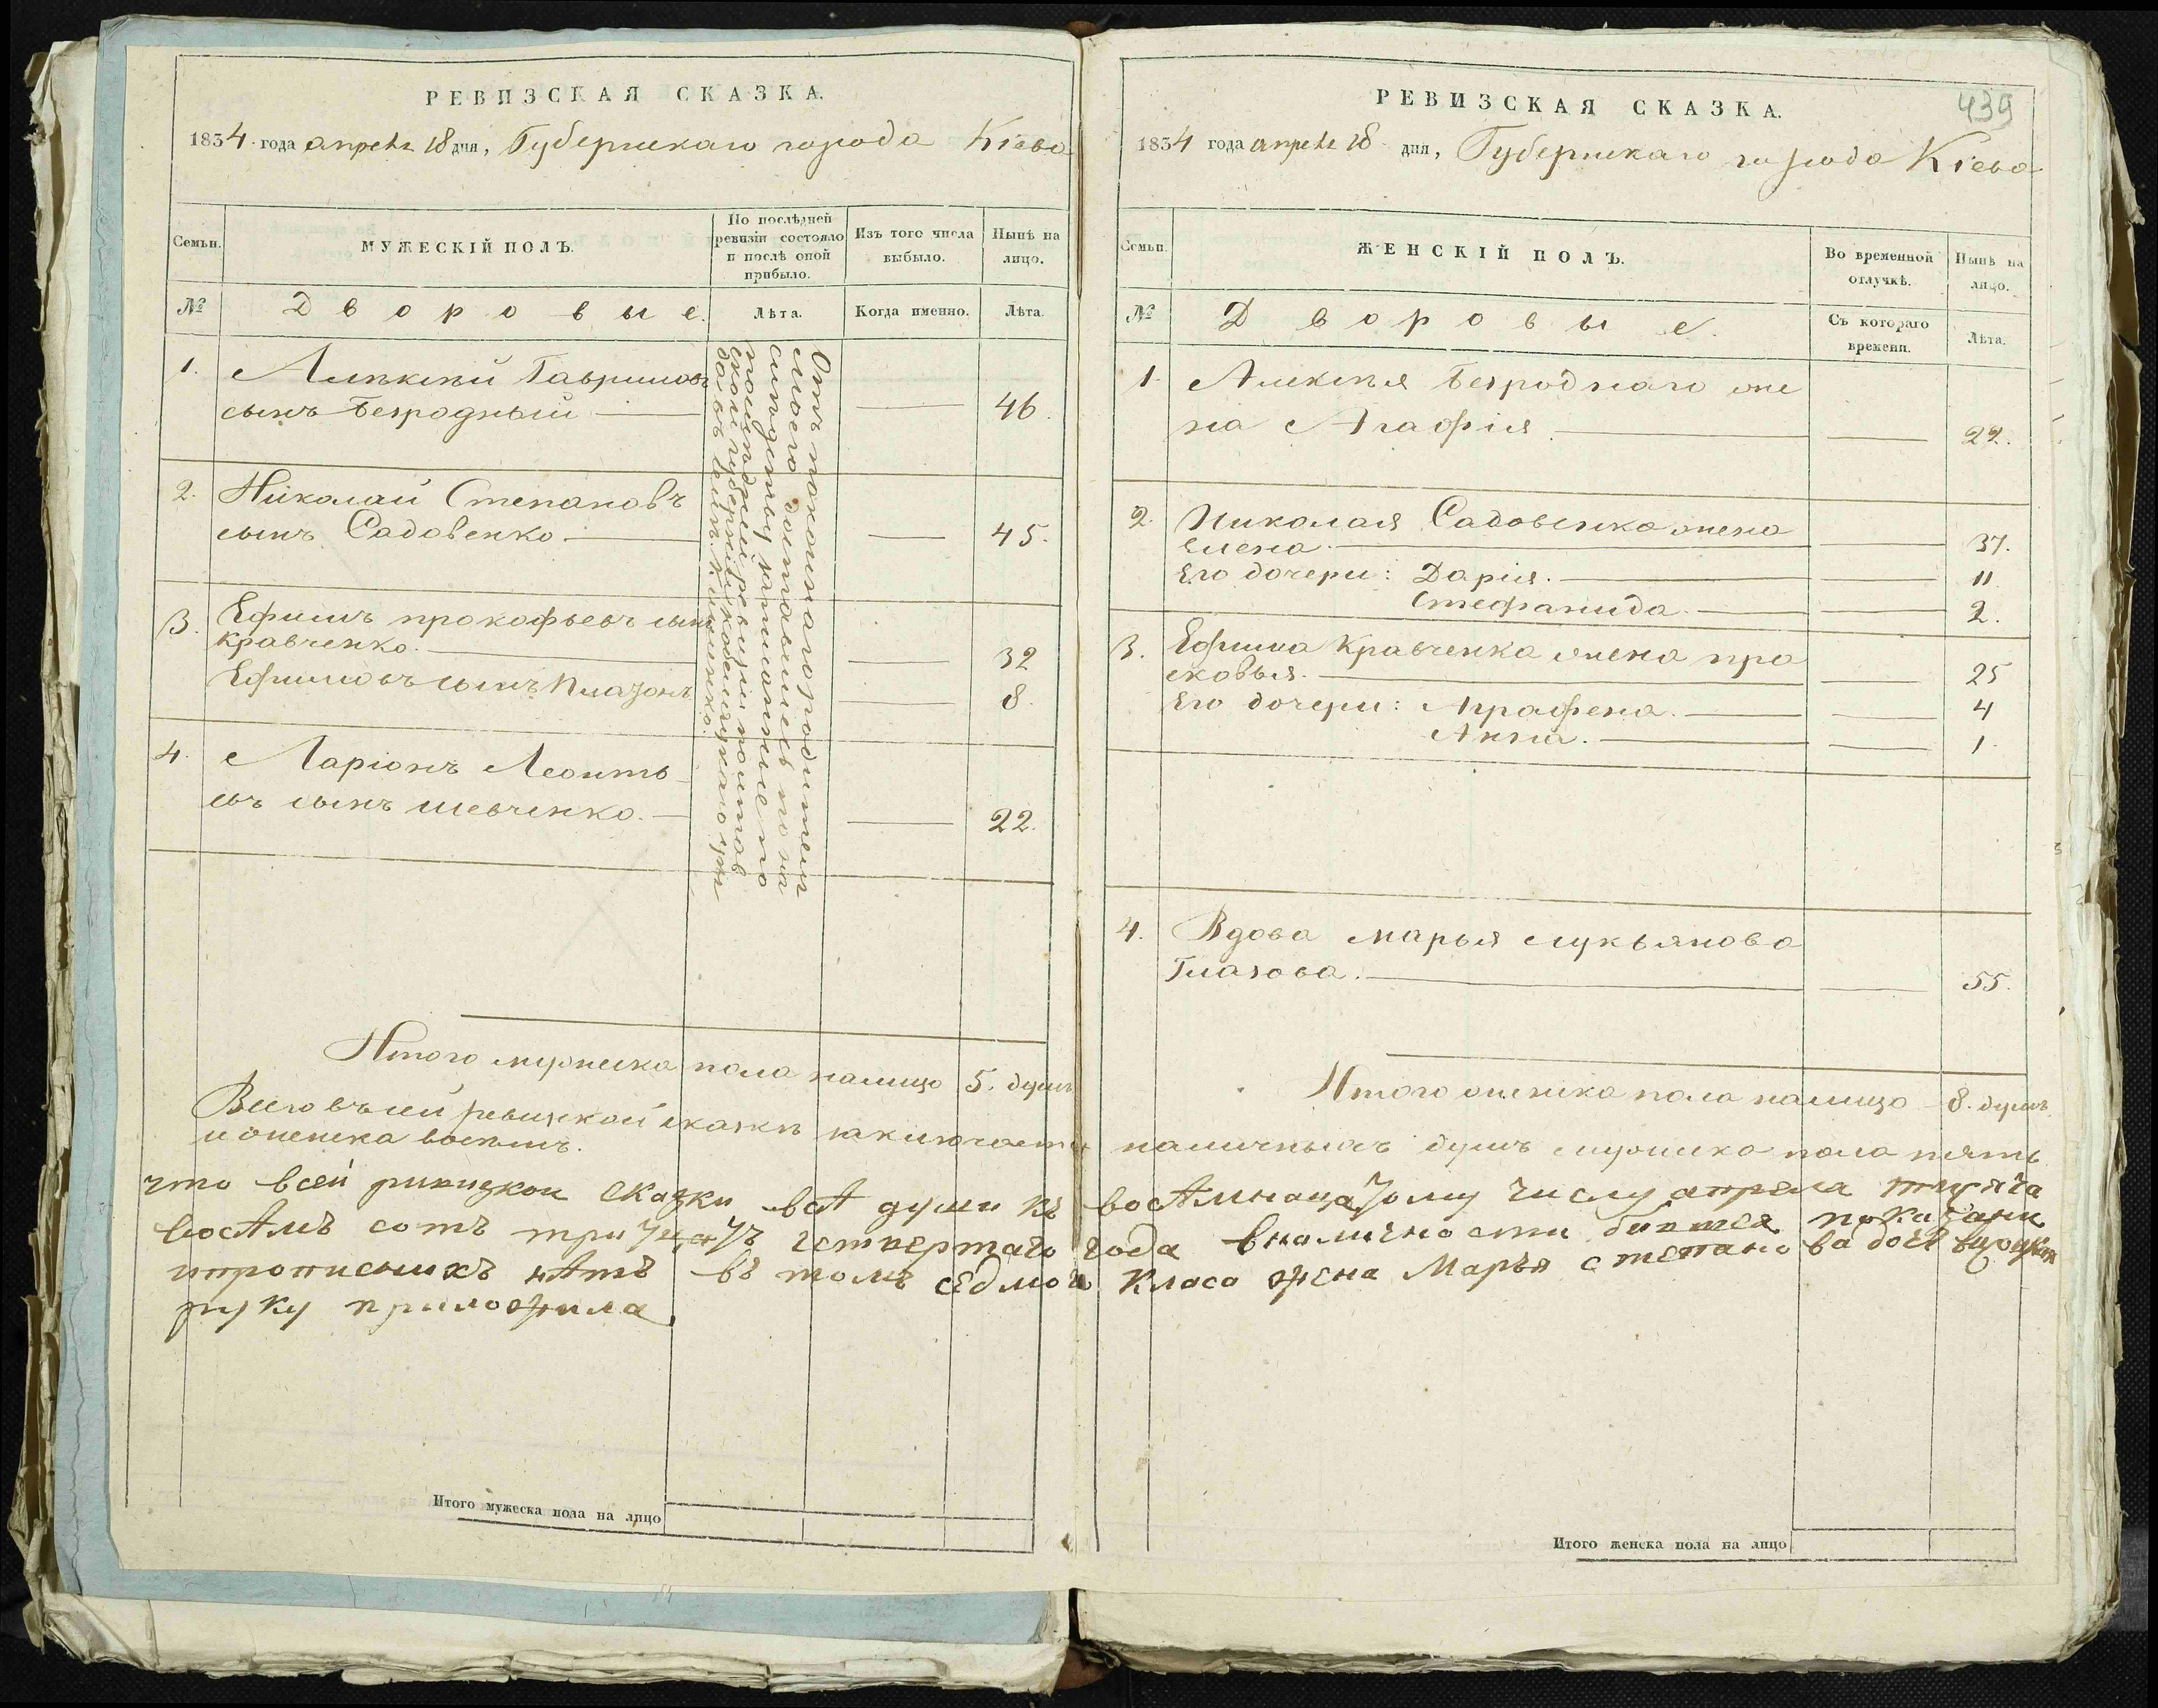 РЕВИЗСКАЯ СКАЗКА.
1834 года апреля 18 дня, Губернскаго города Кіева
Семьи.
МУЖЕСКІЙ ПОЛЪ.
По послѣдней ревизіи состояло и послѣ оной прибыло.
Изъ того числа выбыло.
Нынѣ на лицо.
№
Дворовые.
Лѣта.
Когда именно.
Лѣта.
1. Алексѣй Гавриловъ
сынъ Безродный 46.
2. Николай Степановъ
сынъ Садовенко 45.
3. Ефимъ прокофьевъ сынъ
кравченко. 32
Ефимовъ сынъ Платонъ 8.
4. Ларіонъ Леонть
евъ сынъ шевченко. 22.
Отъ покойнаго родителя
моего доставшіесь по на
слѣдству записанные по
послѣдней ревизіи полтов
ской губерніи
Итого мужеска пола налицо 5. душъ
Всего въ сей ревизской сказки заключается
и женска восемь.
что всей ривизкои сказки всѣ души къ
восѣмъ сотъ трицатъ четвертаго
ипрописныхъ нѣтъ въ томъ седмои
руку приложила
Итого мужеска пола на лицо
439
РЕВИЗСКАЯ СКАЗКА.
1834 года апреля 18 дня, Губернскаго города Кіева
Семьи.
ЖЕНСКІЙ ПОЛЪ.
Во временной отлучкѣ.
Нынѣ на лицо.
№
Дворовые.
Съ котораго времени.
Лѣта.
1. Алексѣя Безроднаго же
на Агафія 29.
2. Николая Садовенка жена
Елена. 37.
Его дочери: Дарія. 11
Стефанида. 2.
3. Ефима Кравченка жена пра
сковья. 25
Его дочери: Аграфена. 4
Анна. 1.
4. Вдова марья лукьянова
Глазова. 55.
Итого женска пола налицо 8. душъ.
наличныхъ душъ мужеска пола пять
восѣмнацатому числу апреля тысяча
года вналичности показани
класа жена Марья степанова дочь
Итого женска пола на лицо